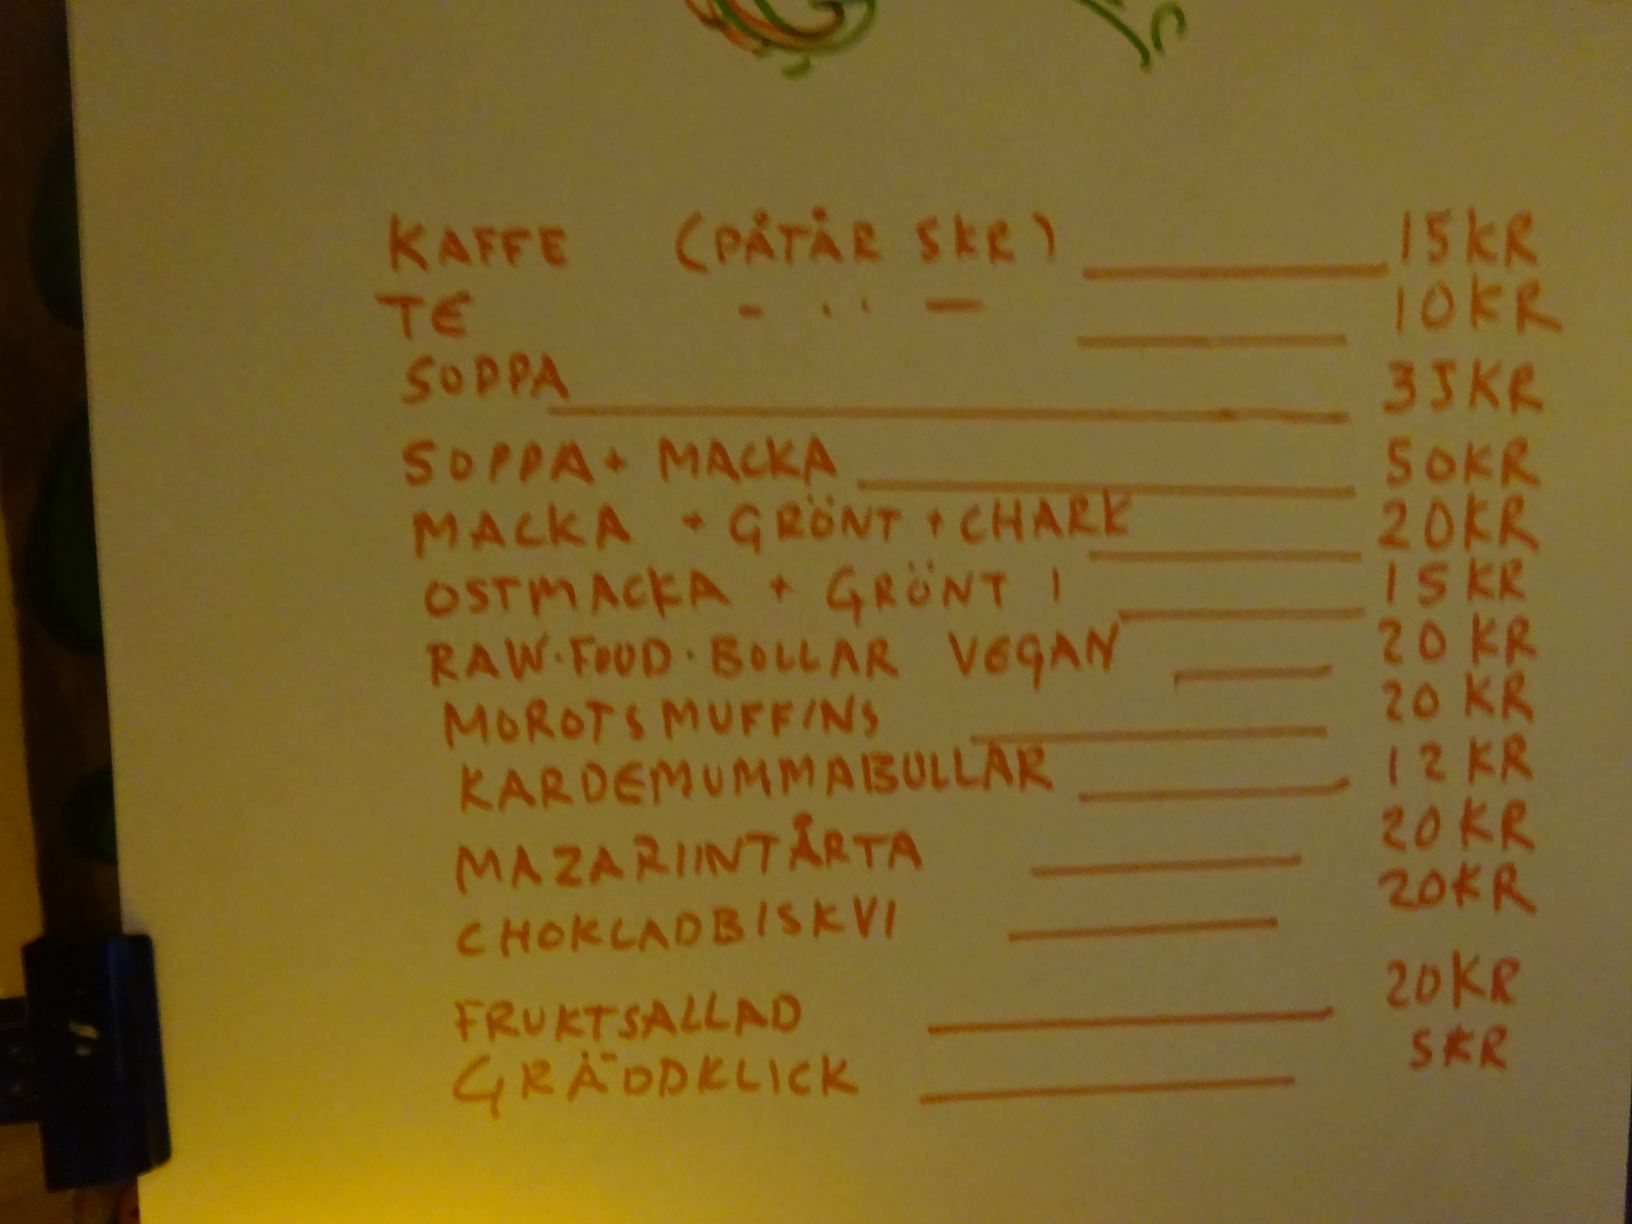 KAFFE (PÅTÅR 5KR) 15KR
TE - ·· - 10KR
SOPPA 35KR
SOPPA + MACKA 50KR
MACKA + GRÖNT + CHARK 20KR
OSTMACKA + GRÖNT 1 15KR
RAW·FOOD·BOLLAR VEGAN 20 KR
MOROTSMUFFINS 20 KR
KARDEMUMMABULLAR 12 KR
MAZARIINTÅRTA 20KR
CHOKLADBISKVI 20KR
FRUKTSALLAD 20KR
GRÄDDKLICK 5KR